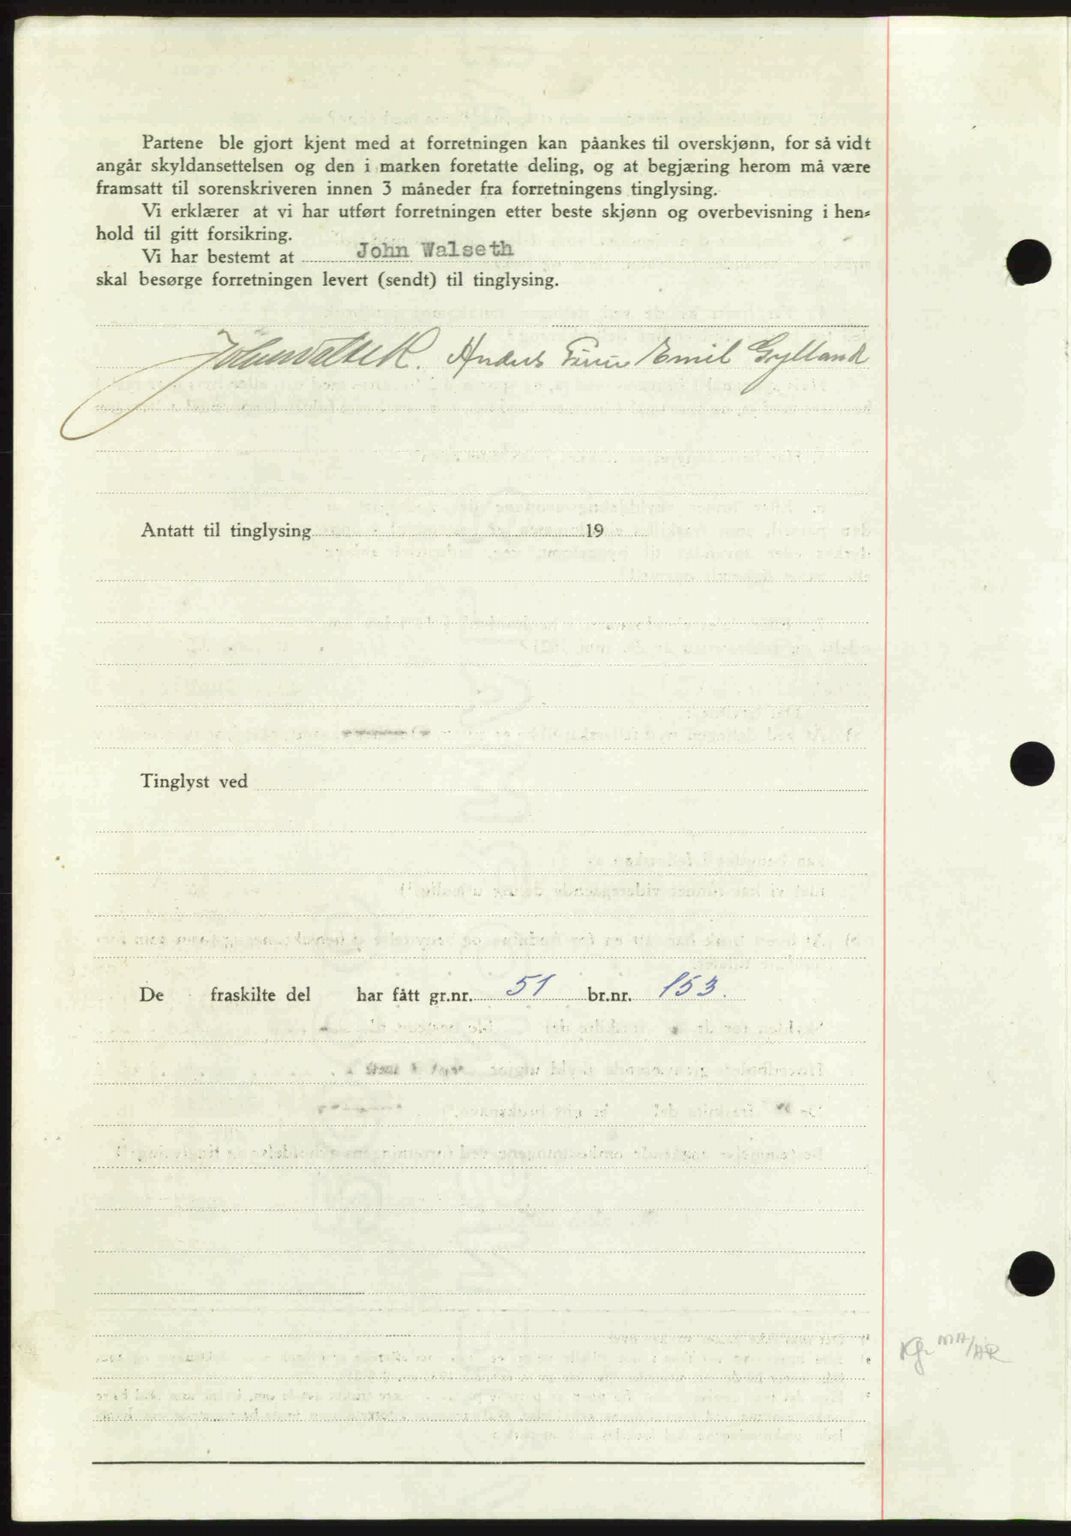 Partene ble gjort kjent med at forretningen kan påankes til overskjønn, for så vidt
angår skyldansettelsen og den i marken foretatte deling, og at begjæring herom må være
framsatt til sorenskriveren innen 3 måneder fra forretningens tinglysing.
Vi erklærer at vi har utført forretningen etter beste skjønn og overbevisning i hen-
hold til gitt forsikring.
Vi har bestemt at John Walseth
skal besørge forretningen levert (sendt) til tinglysing.
John Walseth. Anders Emil Gylland
Antatt til tinglysing 19
Tinglyst ved
De fraskilte del har fått gr.nr. 51 br.nr. 153.